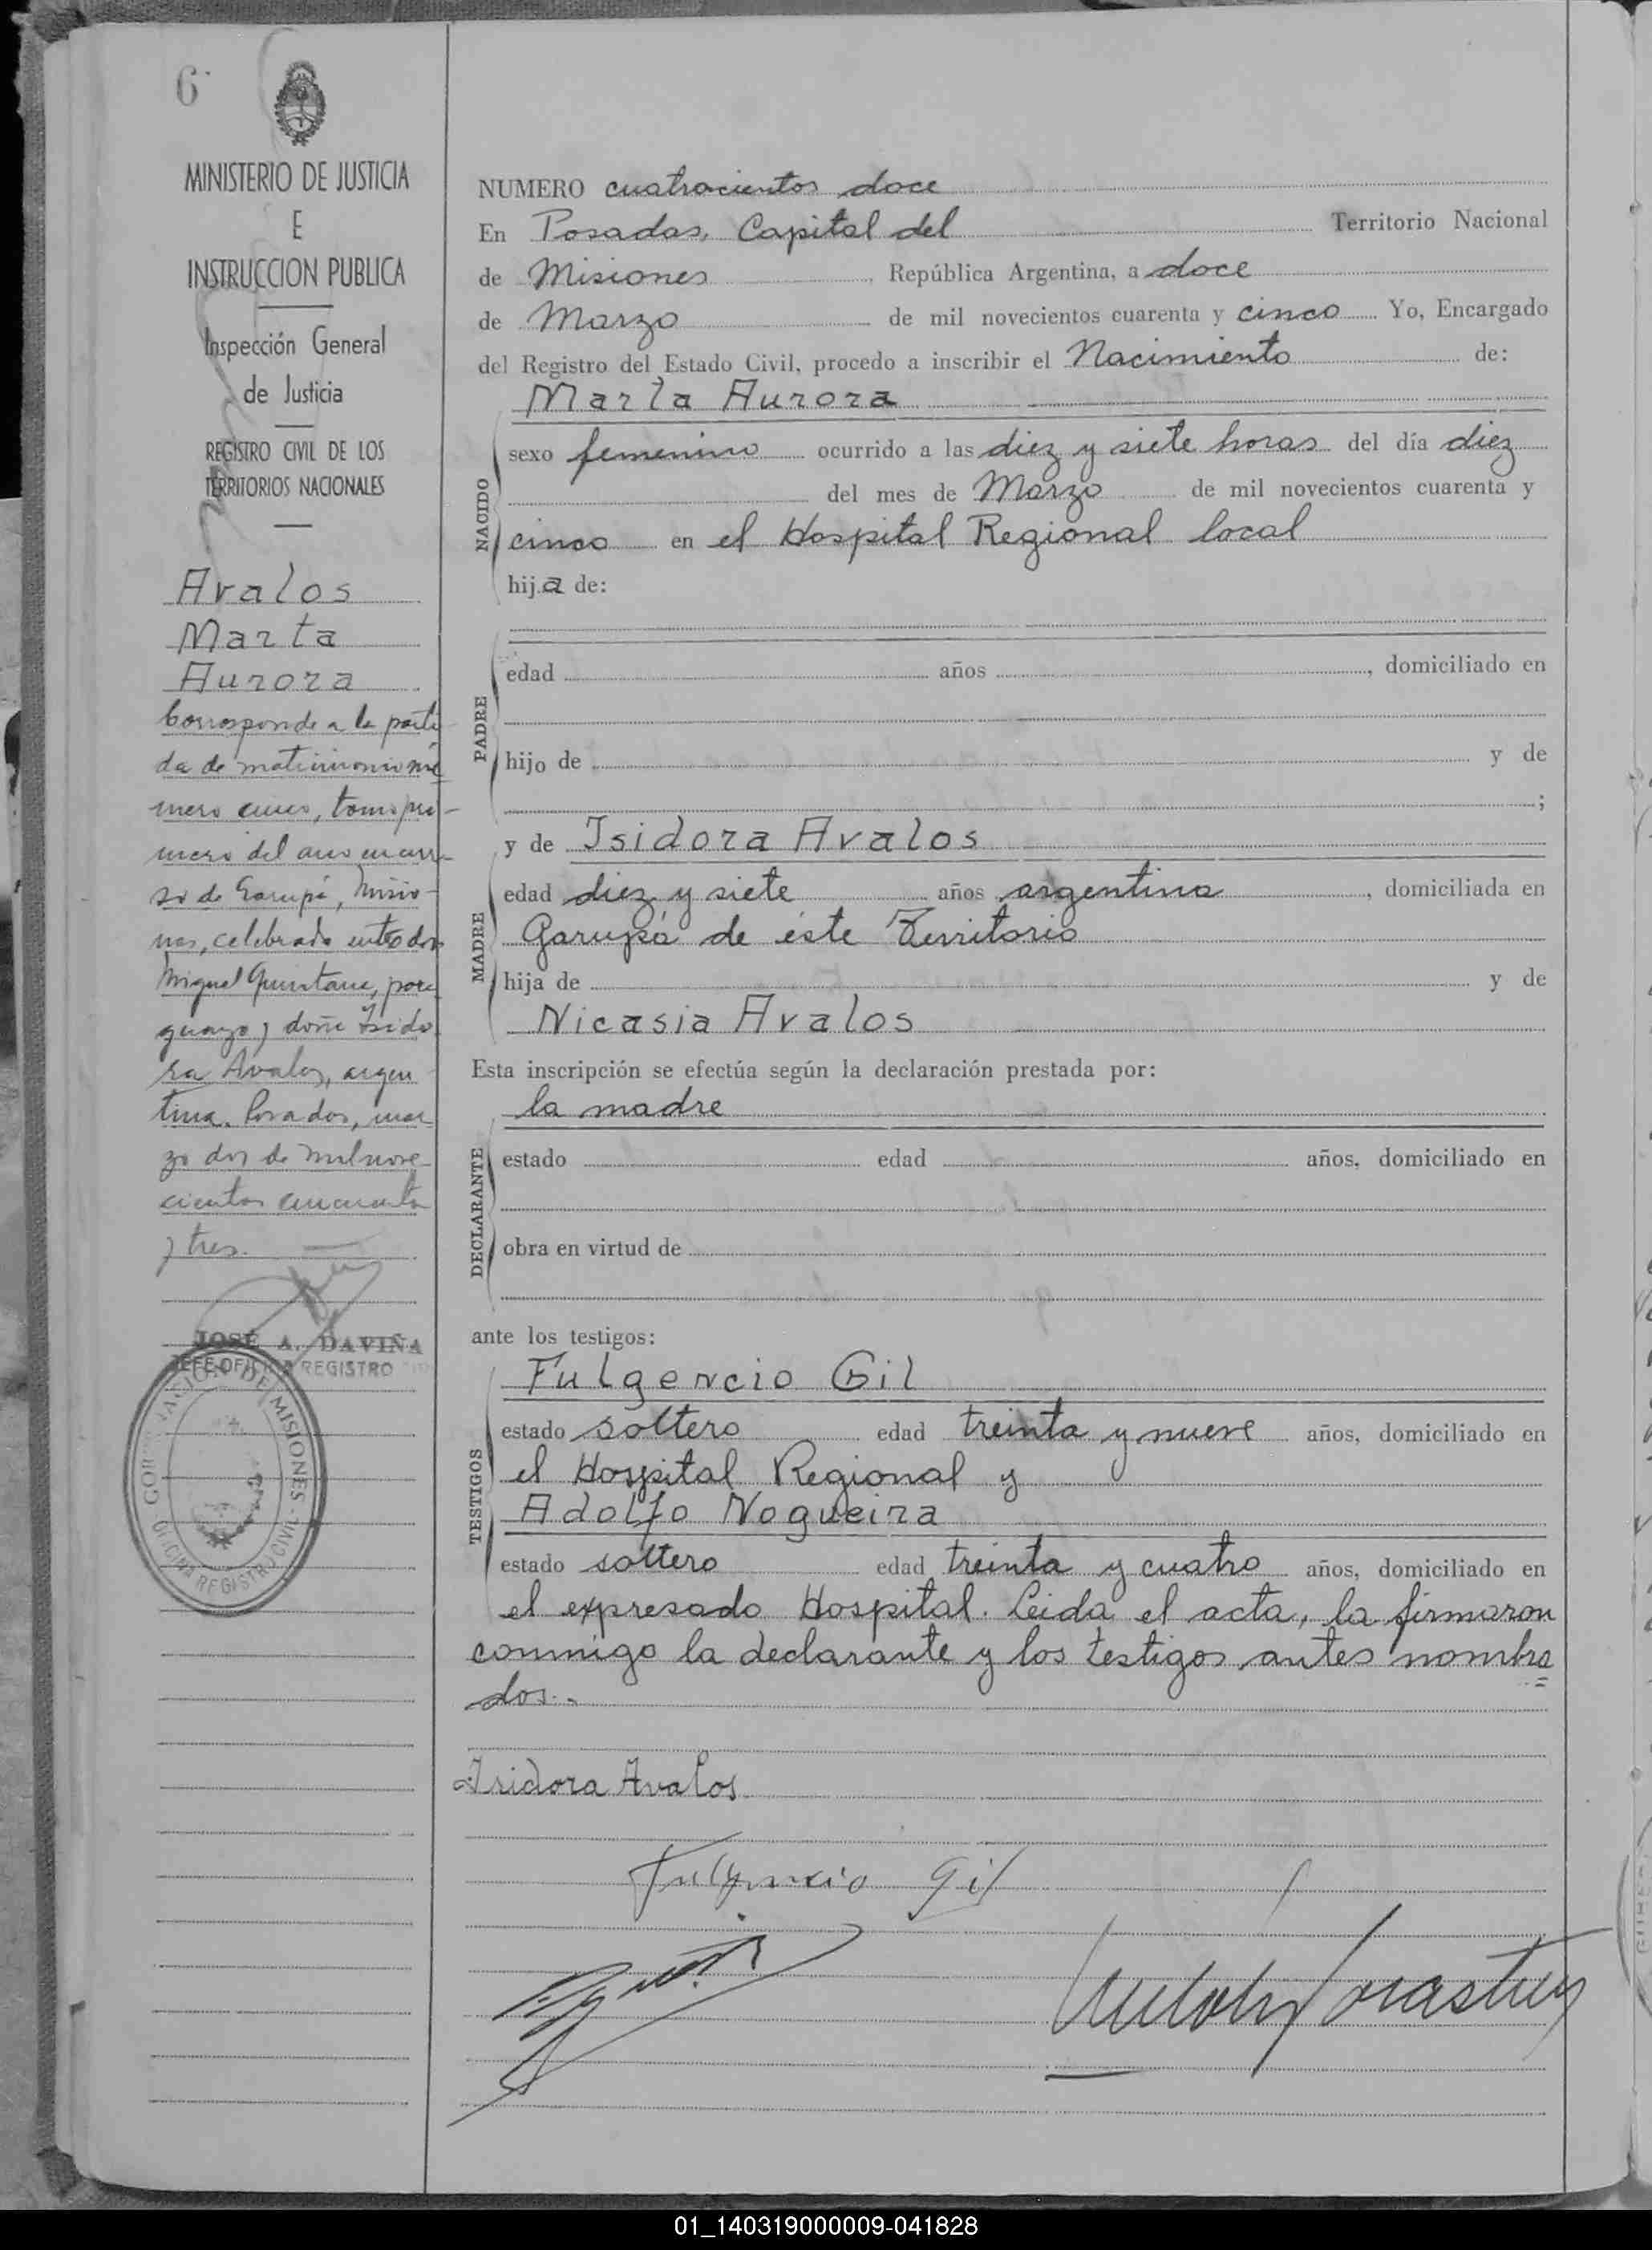 6
MINISTERIO DE JUSTICIA
E
INSTRUCCION PUBLICA
Inspección General
de Justicia
REGISTRO CIVIL DE LOS
TERRITORIOS NACIONALES
Avalos
Marta
Aurora
Corresponde a la parti
da de matrimonio nú
mero cinco, tomo pri-
mero del año en cur-
so de Garupá, Misio-
nes, celebrado entre don
Miguel Quintana, para
guayo y doña Isido
ra Avalos, argen
tina. Posadas, mar
zo dos de mil nove
cientos cincuenta
y tres.
JOSÉ A. DAVIÑA
JEFE OFICINA REGISTRO
GOBERNACION DE MISIONES
OFICINA REGISTRO CIVIL
NUMERO cuatrocientos doce
En Posadas, Capital del Territorio Nacional
de Misiones, República Argentina, a doce
de Marzo de mil novecientos cuarenta y cinco Yo, Encargado
del Registro del Estado Civil, procedo a inscribir el Nacimiento de:
Marta Aurora
NACIDO
sexo femenino ocurrido a las diez y siete horas del día diez
del mes de Marzo de mil novecientos cuarenta y
cinco en el Hospital Regional local
hija de:
PADRE
edad años , domiciliado en
hijo de y de
;
y de Isidora Avalos
MADRE
edad diez y siete años argentina , domiciliada en
Garupá de éste Territorio
hija de y de
Nicasia Avalos
Esta inscripción se efectúa según la declaración prestada por:
la madre
DECLARANTE
estado edad años, domiciliado en
obra en virtud de
ante los testigos:
Fulgencio Gil
TESTIGOS
estado soltero edad treinta y nueve años, domiciliado en
el Hospital Regional y
Adolfo Nogueira
estado soltero edad treinta y cuatro años, domiciliado en
el expresado Hospital. Leida el acta, la firmaron
conmigo la declarante y los testigos antes nombra
dos.-
Isidora Avalos
Fulgencio Gil
01_140319000009-041828